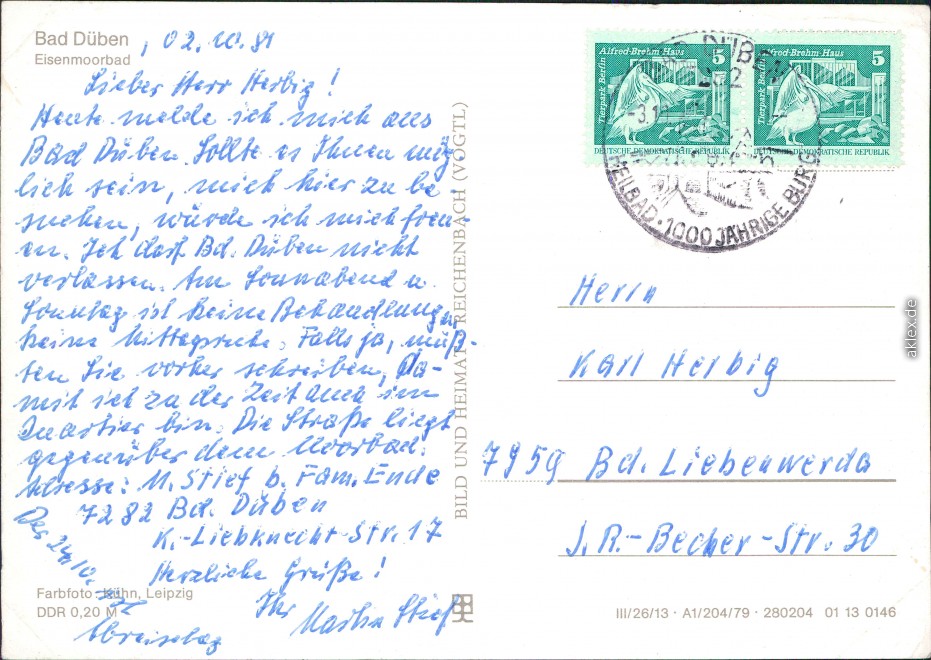 Bad Düben
Eisenmoorbad
, 02.10.81
Lieber Herr Herbig!
Heute melde ich mich aus
Bad Düben. Sollte es Ihnen mög-
lich sein, mich hier zu be
suchen, würde ich mich freu-
en. Ich darf Bd. Düben nicht
verlassen. Am Sonnabend u.
Sonntag ist keine Behandlung u.
keine Mittagsruhe. Falls ja, müß-
ten Sie vorher schreiben, da-
mit ich zu der Zeit auch im
Quartier bin. Die Straße liegt
gegenüber dem Moorbad.
Adresse: M. Stief b. Fam. Ende
7282 Bd. Düben
K.-Liebknecht-Str. 17
Herzliche Grüße!
Ihr Martha Stief
Der 24.10. ist
Abreisetag
Farbfoto: Kühn, Leipzig
DDR 0,20 M
BILD UND HEIMAT REICHENBACH (VOGTL)
Alfred-Brehm-Haus 5
Tierpark Berlin
DEUTSCHE DEMOKRATISCHE REPUBLIK
Alfred-Brehm-Haus 5
Tierpark Berlin
DEUTSCHE DEMOKRATISCHE REPUBLIK
DÜBEN
HEILBAD · 1000JÄHRIGE BURG
Herrn
Karl Herbig
7959 Bd. Liebenwerda
J.R.-Becher-Str. 30
III/26/13 · A1/204/79 · 280204 01 13 0146
aklex.de